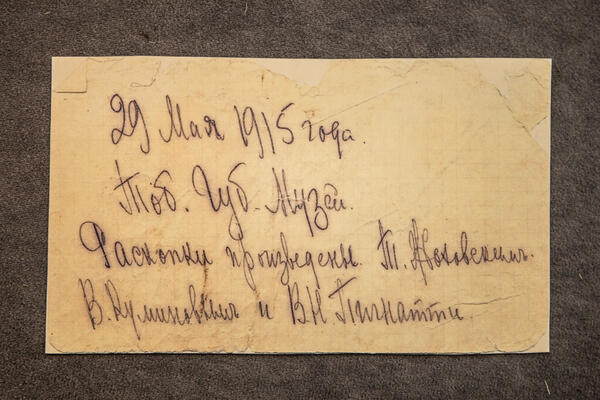 29 Мая 1915 года.
Тоб. Губ. Музей.
Раскопки произведены. Т.
В. и В.Н. Пигнатти.